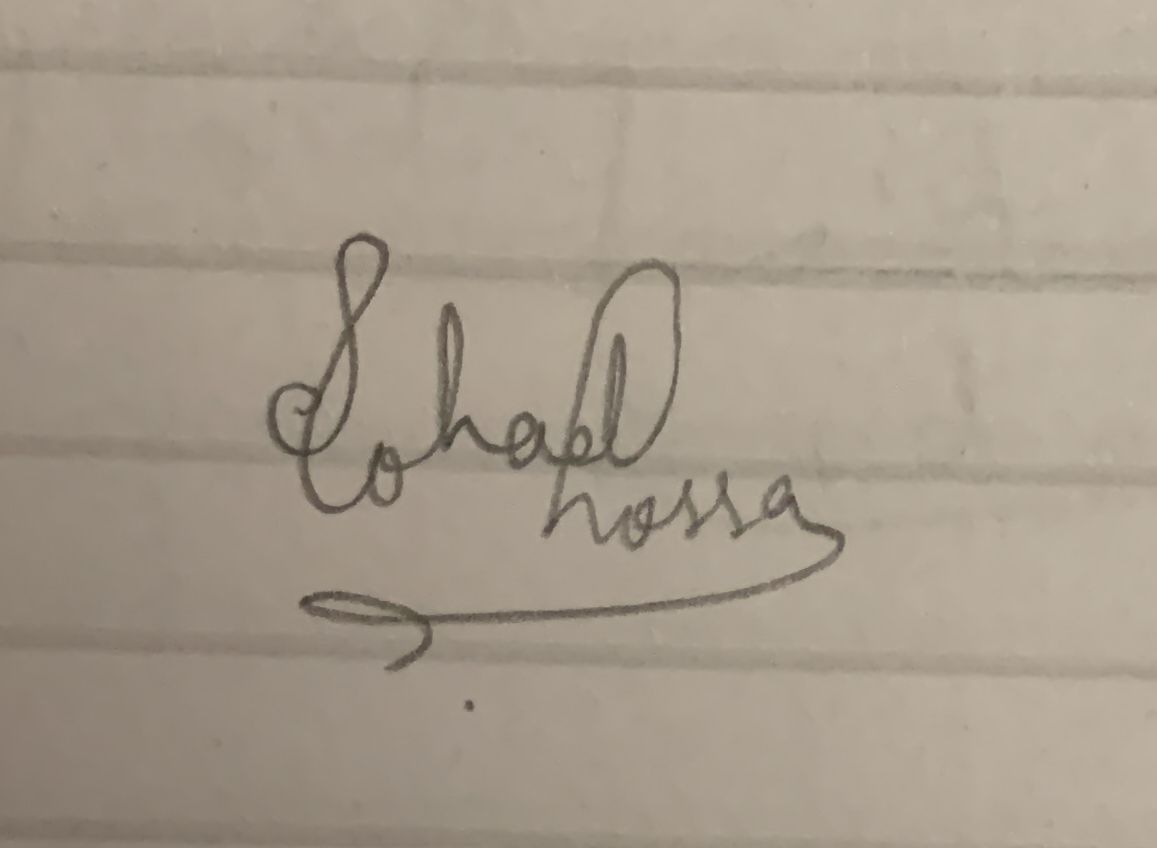 Sohad
hossa